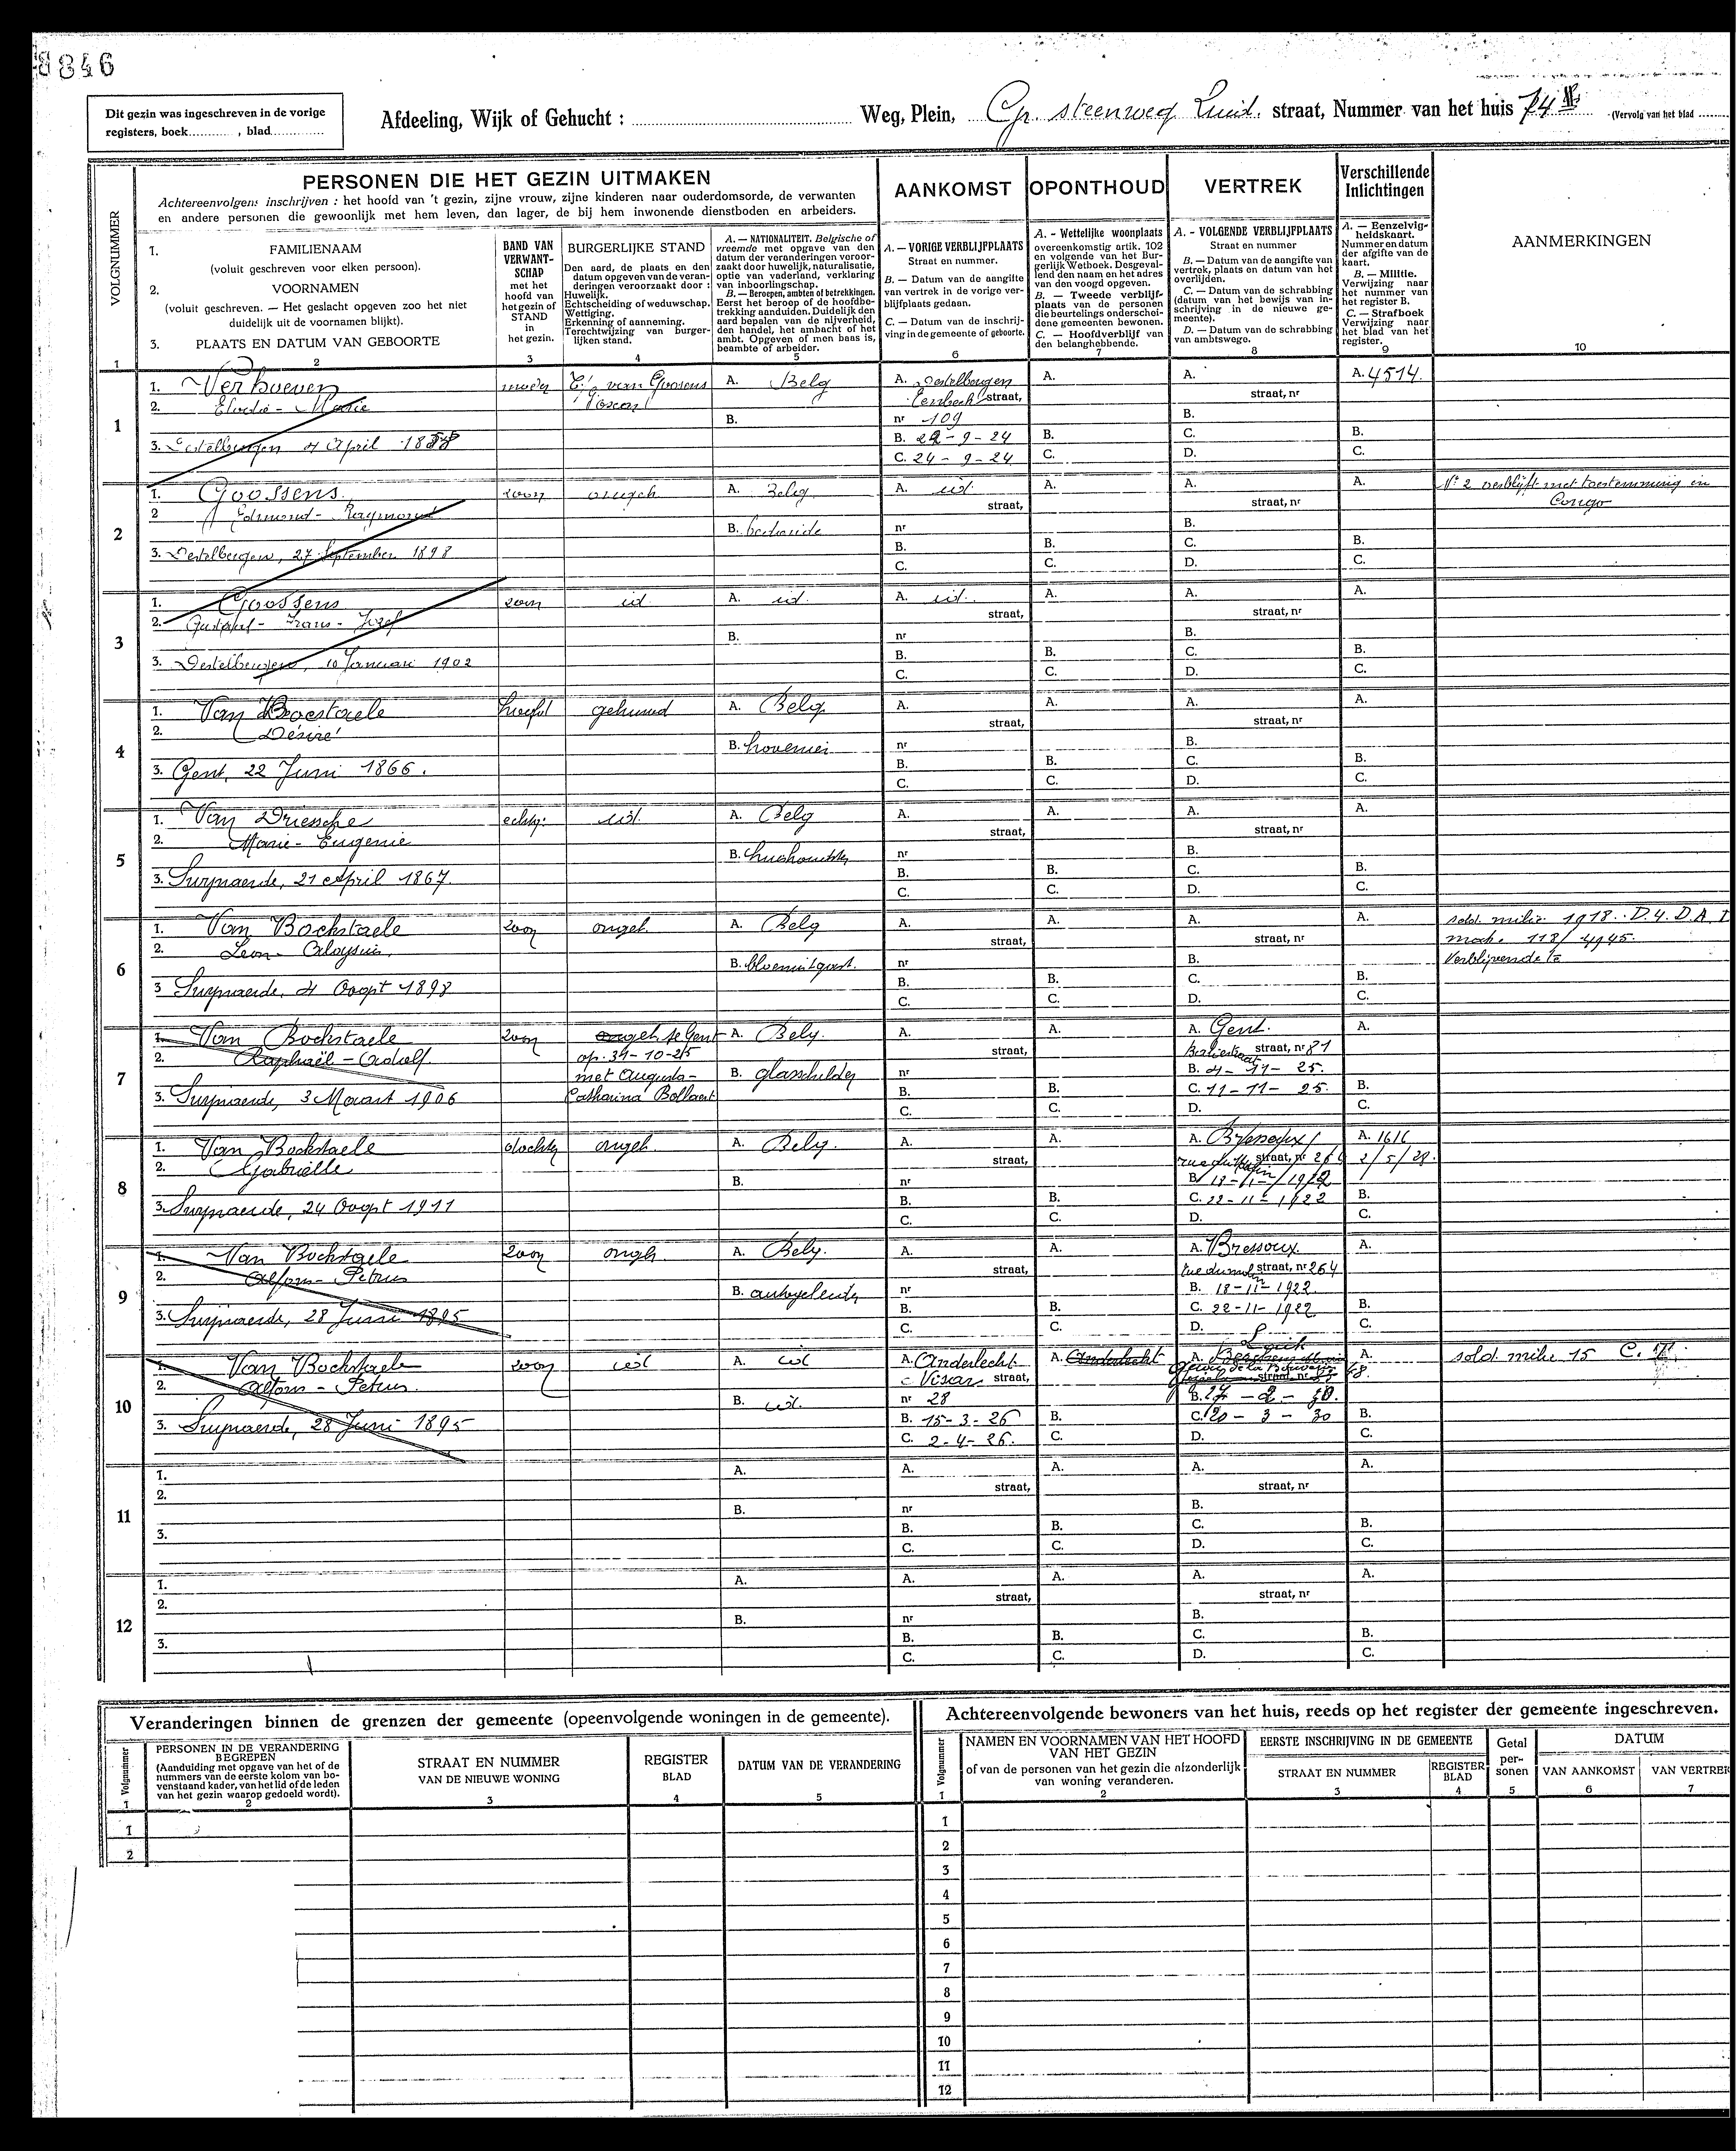 8846
Dit gezin was ingeschreven in de vorige
registers, boek.........., blad.............
Afdeeling, Wijk of Gehucht :
Weg, Plein, Gr. steenweg Zuid. straat, Nummer van het huis 74
(Vervolg van het blad
VOLGNUMMER
PERSONEN DIE HET GEZIN UITMAKEN
Achtereenvolgens inschrijven : het hoofd van 't gezin, zijne vrouw, zijne kinderen naar ouderdomsorde, de verwanten
en andere personen die gewoonlijk met hem leven, dan lager, de bij hem inwonende dienstboden en arbeiders.
1. FAMILIENAAM
(voluit geschreven voor elken persoon).
2. VOORNAMEN
(voluit geschreven. — Het geslacht opgeven zoo het niet
duidelijk uit de voornamen blijkt).
3. PLAATS EN DATUM VAN GEBOORTE
BAND VAN
VERWANT-
SCHAP
met het
hoofd van
het gezin of
STAND
in
het gezin.
BURGERLIJKE STAND
Den aard, de plaats en den
datum opgeven van de veran-
deringen veroorzaakt door :
Huwelijk.
Echtscheiding of weduwschap.
Wettiging.
Erkenning of aanneming.
Terechtwijzing van burger-
lijken stand.
A. — NATIONALITEIT. Belgische of
vreemde met opgave van den
datum der veranderingen veroor-
zaakt door huwelijk, naturalisatie,
optie van vaderland, verklaring
van inboorlingschap.
B. — Beroepen, ambten of betrekkingen.
Eerst het beroep of de hoofdbe-
trekking aanduiden. Duidelijk den
aard bepalen van de nijverheid,
den handel, het ambacht of het
ambt. Opgeven of men baas is,
beambte of arbeider.
AANKOMST
A. — VORIGE VERBLIJFPLAATS
Straat en nummer.
B. — Datum van de aangifte
van vertrek in de vorige ver-
blijfplaats gedaan.
C. — Datum van de inschrij-
ving in de gemeente of geboorte.
OPONTHOUD
A. - Wettelijke woonplaats
overeenkomstig artik. 102
en volgende van het Bur-
gerlijk Wetboek. Desgeval-
lend den naam en het adres
van den voogd opgeven.
B. — Tweede verblijf-
plaats van de personen
die beurtelings onderschei-
dene gemeenten bewonen.
C. — Hoofdverblijf van
den belanghebbende.
VERTREK
A. - VOLGENDE VERBLIJFPLAATS
Straat en nummer
B. — Datum van de aangifte van
vertrek, plaats en datum van het
overlijden.
C. — Datum van de schrabbing
(datum van het bewijs van in-
schrijving in de nieuwe ge-
meente).
D. — Datum van de schrabbing
van ambtswege.
Verschillende
Inlichtingen
A. — Eenzelvig-
heidskaart.
Nummer en datum
der afgifte van de
kaart.
B. — Militie.
Verwijzing naar
het nummer van
het register B.
C. — Strafboek
Verwijzing naar
het blad van het
register.
AANMERKINGEN
1 2 3 4 5 6 7 8 9 10
1
1. Verhoeven
2. Elodie - Marie
3. Destelbergen 4 April
moeder
van Goossens
A. Belg
B.
A. Destelbergen
straat,
nr 109
B. 22 - 9 - 24
C. 24 - 9 - 24
A. 4514.
2
1. Goossens
2. Edmond - Raymond
3. Destelbergen, 27 September 1898
zoon
ongeh
A. Belg
B. bediende
A. id.
straat,
N° 2 verblijft met toestemming in
Congo
3
1. Goossens
2. Gustaaf - Frans - Jozef
3. Destelbergen, 10 Januari 1902
zoon
id.
A. id.
A. id.
straat,
4
1. Van Bocstaele
2. Désiré
3. Gent, 22 Juni 1866.
hoofd
gehuwd
A. Belg
B. hovenier
5
1. Van Driessche
2. Marie - Eugenie
3. Swijnaerde, 21 April 1867.
echtg.
id.
A. Belg
B. huishoudster
6
1. Van Bockstaele
2. Leon - Aloysius.
3. Swijnaerde, 4 Oogst 1898
zoon
ongeh.
A. Belg
B. bloemist gast.
sold. milic. 1918. D. 4. D. A.
mat. 118/4945.
Verblijvende te
7
1. Van Bockstaele
2. Raphaël - Adolf
3. Swijnaerde, 3 Maart 1906
zoon
ongeh. te Gent
op. 31-10-25
met Augusta-
Catharina Bollaert
A. Belg.
B. glasschilder
A. Gent.
straat, nr 81
B. 4 - 11 - 25.
C. 11 - 11 - 25.
8
1. Van Bockstaele
2. Gabriëlle
3. Swijnaerde, 24 Oogst 1911
dochter
ongeh.
A. Belg.
A. Bressoux
rue du Moulin straat, nr 264
B. 18 - 11 - 1922
C. 22 - 11 - 1922
A. 1616
2/5/28.
9
1. Van Bockstaele
2. Alfons - Petrus
3. Swijnaerde, 28 Juni 1895
zoon
ongeh.
A. Belg.
B. autogeleider
A. Bressoux.
rue du moulin straat, nr 264
B. 18 - 11 - 1922.
C. 22 - 11 - 1922
10
1. Van Bockstaele
2. Alfons - Petrus.
3. Swijnaerde, 28 Juni 1895
zoon
id
A. id
B. id.
A. Anderlecht
Visar straat,
nr 28
B. 15 - 3 - 26
C. 2 - 4 - 26.
A. Anderlecht
Luik
B. 27 - 2 - 30.
C. 20 - 3 - 30
sold. milic 15 C.
11
12
Veranderingen binnen de grenzen der gemeente (opeenvolgende woningen in de gemeente).
Volgnummer
PERSONEN IN DE VERANDERING
BEGREPEN
(Aanduiding met opgave van het of de
nummers van de eerste kolom van bo-
venstaand kader, van het lid of de leden
van het gezin waarop gedoeld wordt).
STRAAT EN NUMMER
VAN DE NIEUWE WONING
REGISTER
BLAD
DATUM VAN DE VERANDERING
1 2 3 4 5
1
2
Achtereenvolgende bewoners van het huis, reeds op het register der gemeente ingeschreven.
Volgnummer
NAMEN EN VOORNAMEN VAN HET HOOFD
VAN HET GEZIN
of van de personen van het gezin die afzonderlijk
van woning veranderen.
EERSTE INSCHRIJVING IN DE GEMEENTE
STRAAT EN NUMMER
REGISTER
BLAD
Getal
per-
sonen
DATUM
VAN AANKOMST
VAN VERTREK
1 2 3 4 5 6 7
1
2
3
4
5
6
7
8
9
10
11
12